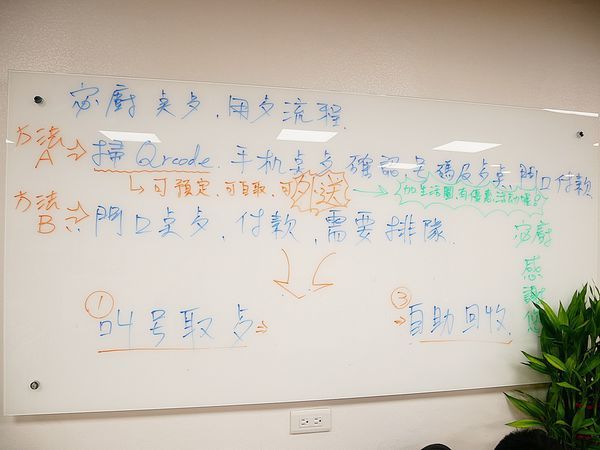 家廚 奌歺.用歺流程.
方法A
掃 Qrcode. 手机奌歺 確認号碼及歺奌,門口付款
可預定,可自取,可外送
加生活圈,有優惠,活動喔!
方法B
門口奌歺,付款,需要排隊.
① 叫号取歺
③ 自助回收
家廚感謝您